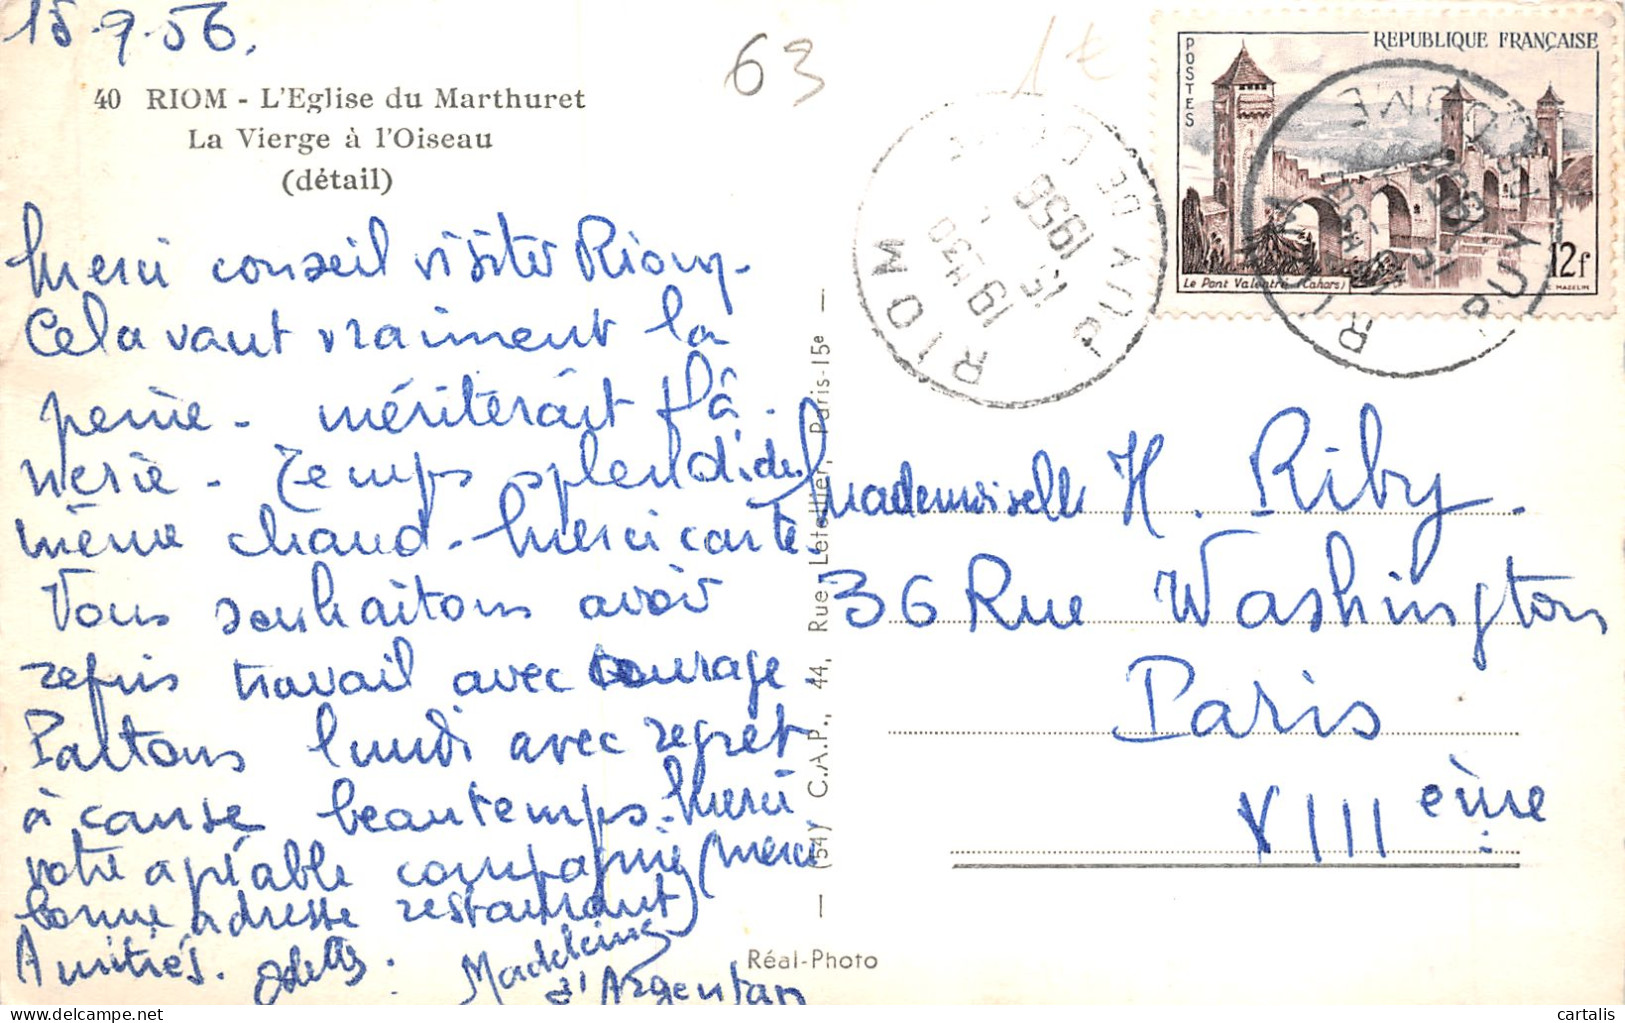 15-9-56.
40 RIOM - L'Eglise du Marthuret
La Vierge à l'Oiseau
(détail)
Merci conseil visiter Riom -
Cela vaut vraiment la
peine - mériterait flâ-
nerie - Temps splendide
même chaud - Merci carte -
Vous souhaitons avoir
repris travail avec courage
Partons lundi avec regret
à cause beau temps. Merci
votre agréable compagnie (merci
bonne adresse restaurant)
Amitiés. Odette.
Madeleine
d'Argentan
(54) C.A.P., 44, Rue Letellier, Paris-15e
Réal-Photo
63
1€
RIOM
PUY DE DOME
19 H30
15 - 9
1956
REPUBLIQUE FRANÇAISE
POSTES
12f
Le Pont Valentré (Cahors)
RIOM
PUY DE DOME
Mademoiselle H. Riby.
36 Rue Washington
Paris
VIIIème
cartalis.com